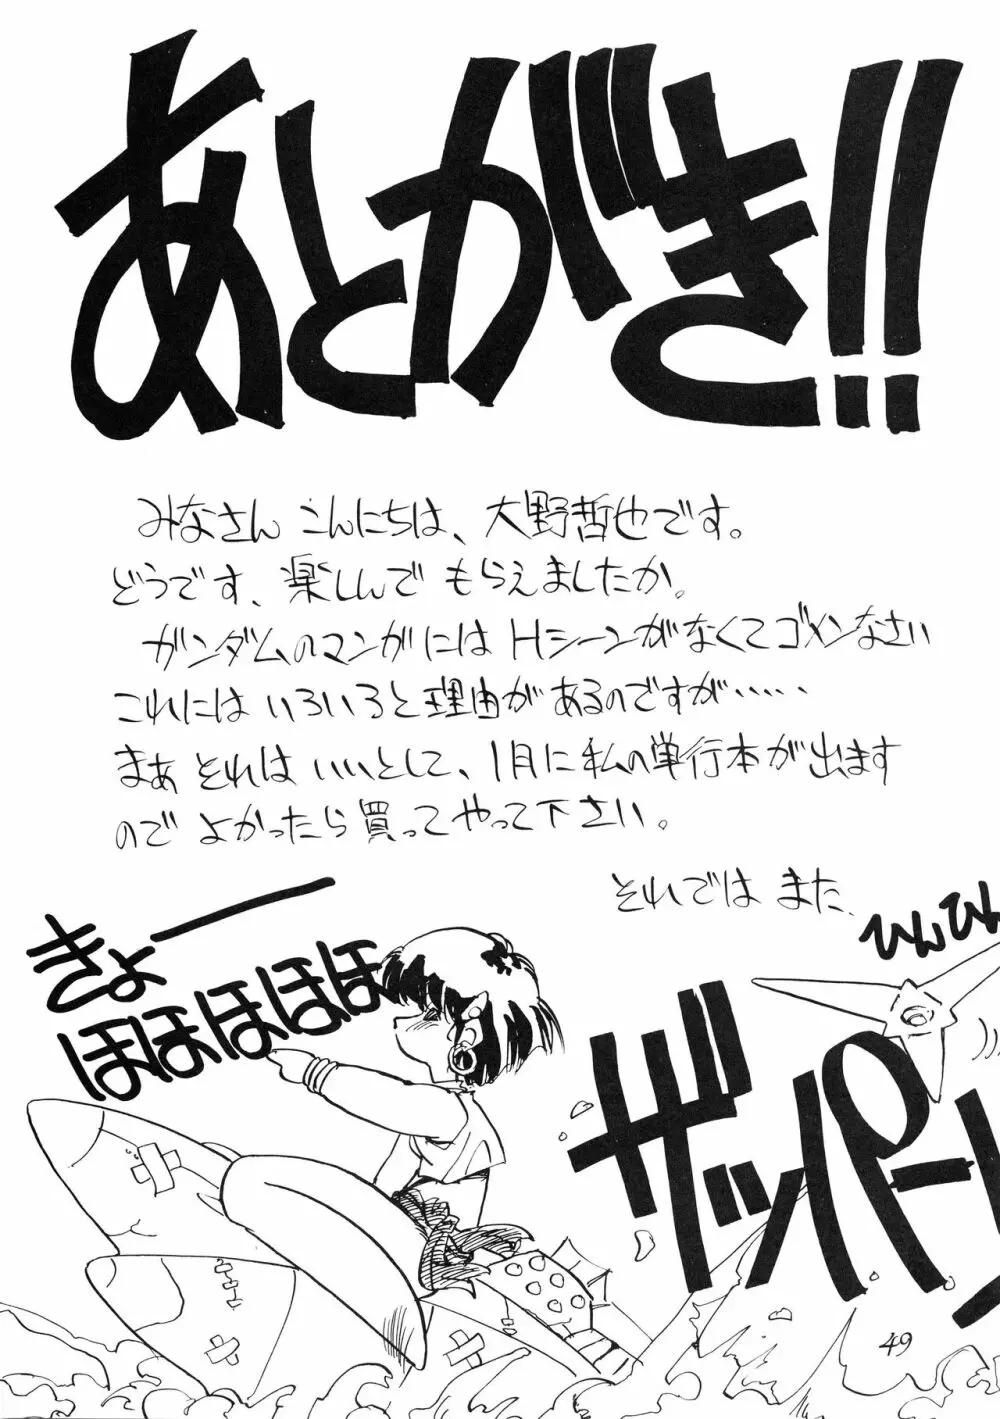 あとがき!!
みなさん こんにちは、大野哲也です。
どうです、楽しんで もらえましたか。
ガンダムのマンガには Hシーンがなくてゴメンなさい
これには いろいろと理由が あるのですが・・・・・
まぁ それは いいとして、1月に私の単行本が出ます
ので よかったら買ってやって下さい。
それでは また。
ひんひん
きょー
ほほほほほ
ザッパーン
49